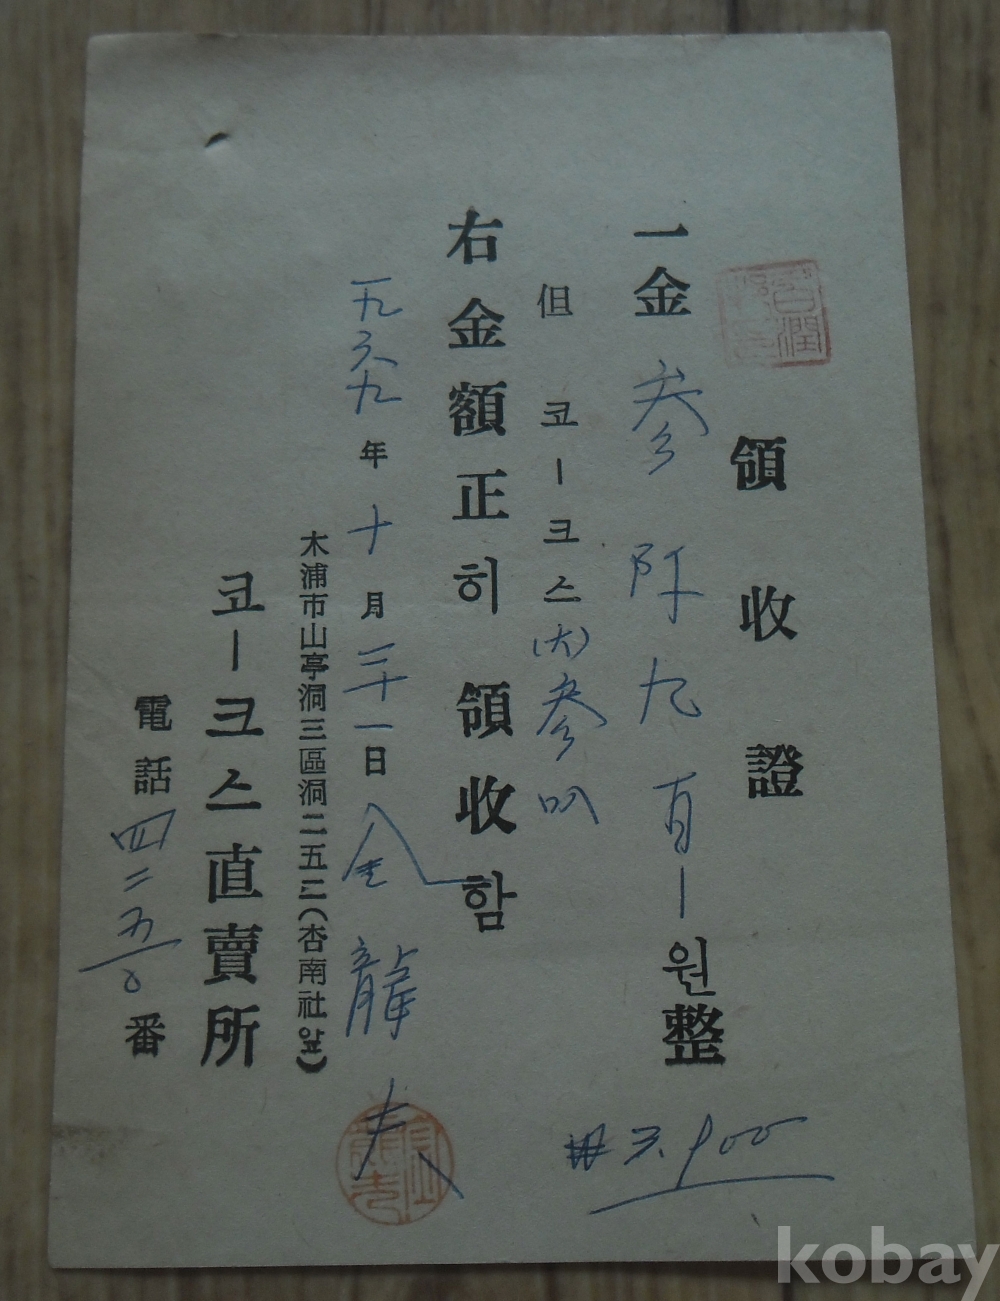 領收證
一金 參阡九百 원整
₩3,900
但 코ー크스 (大) 參叺
右金額正히 領收함
一九六九年 十月 三十一日
木浦市山亭洞三區洞二五三(杏南社앞)
코ー크스直賣所
電話 四二五〇番
金龍
kobay